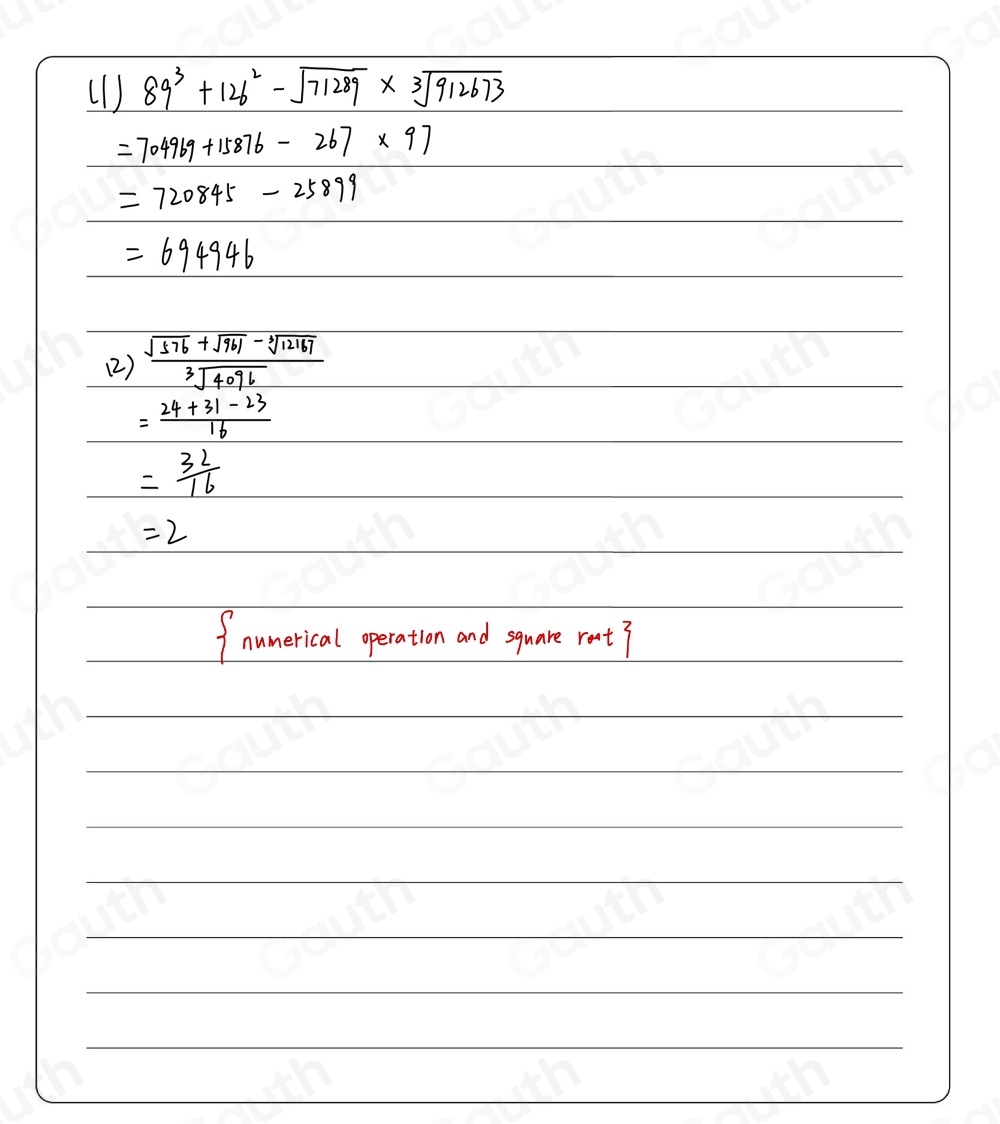 (1) 89³ + 126² - √71289 × ³√912673
= 704969 + 15876 - 267 × 97
= 720845 - 25899
= 694946
(2) (√576 + √961 - ³√12167) / ³√4096
= (24 + 31 - 23) / 16
= 32/16
= 2
{numerical operation and square root}